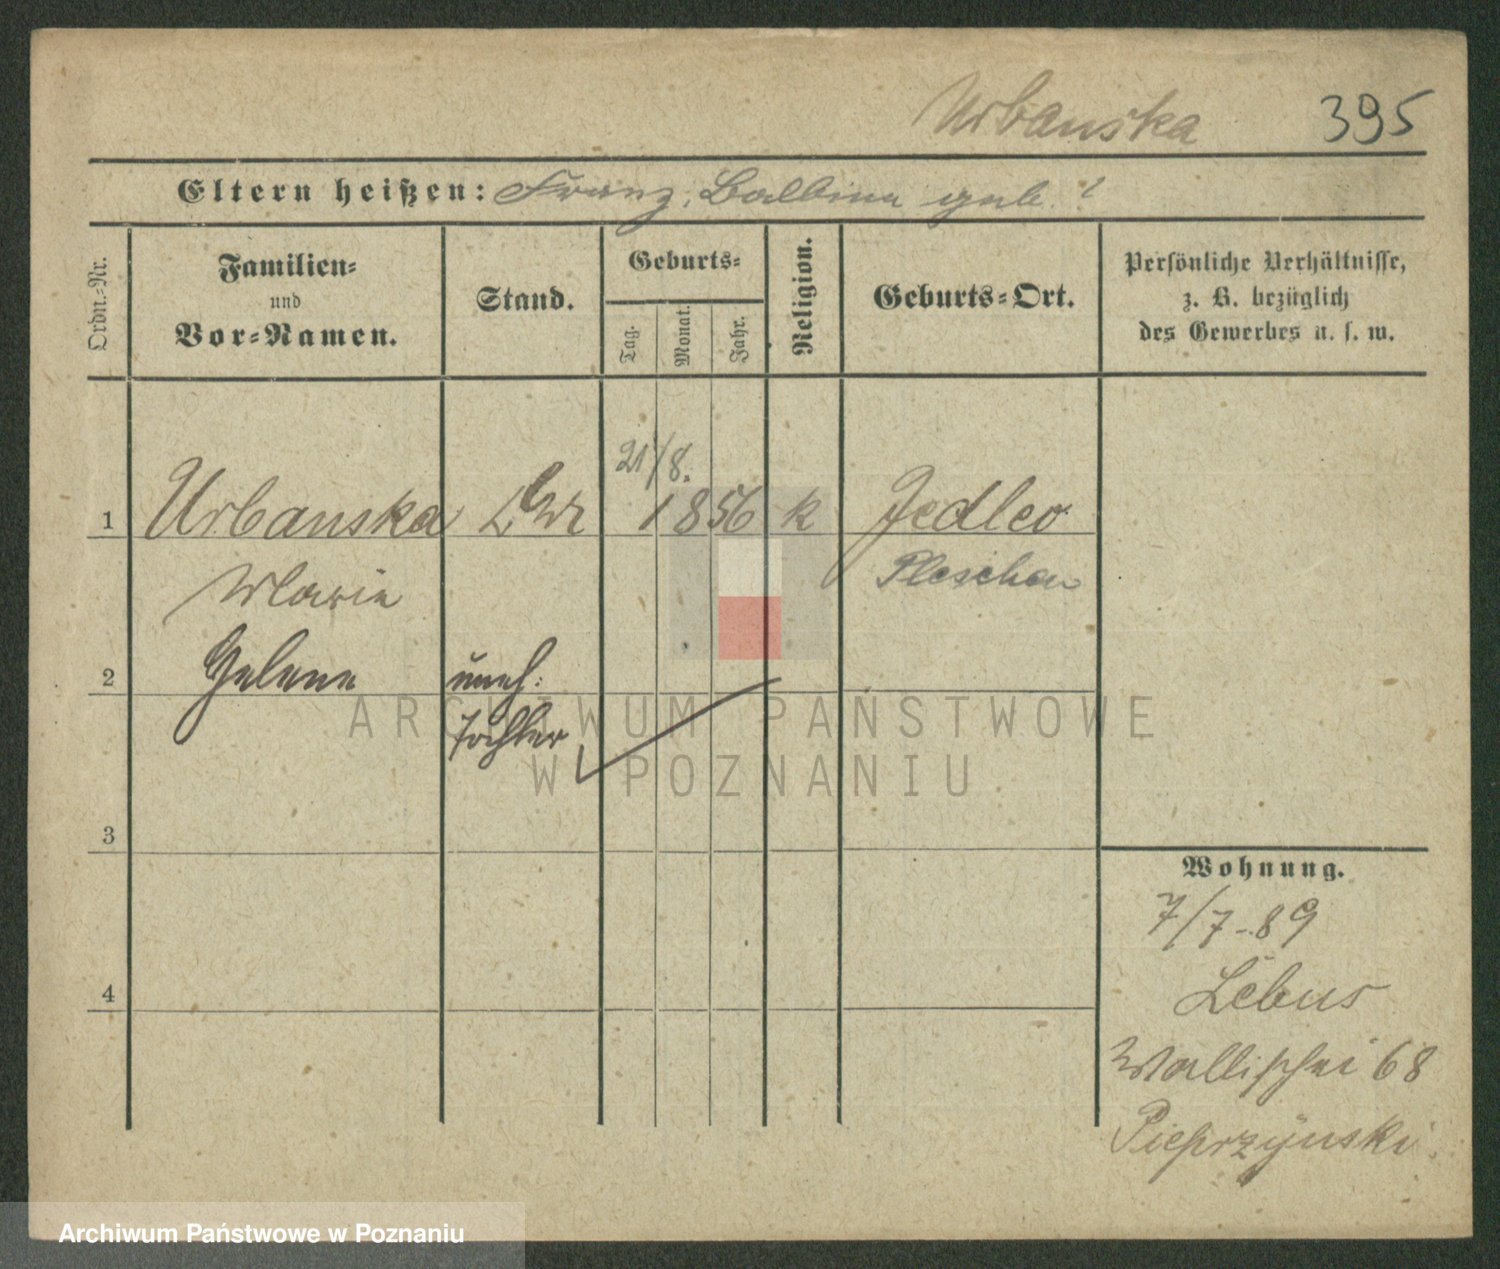 Urbanska 395
Eltern heißen: Franz, Balbina geb. ?
Ordn.-Nr.
Familien- und Vor-Namen.
Stand.
Geburts-
Tag. Monat. Jahr.
Religion.
Geburts-Ort.
Persönliche Verhältnisse, z. B. bezüglich des Gewerbes u. s. w.
21/8.
1 Urbanska 1856 k Jedlec
Marie Pleschen
2 Helene uneh:
Tochter
3
4
Wohnung.
7/7-89
Lebus
Wallischei 68
Pieprzynski.
ARCHIWUM PAŃSTWOWE
W POZNANIU
Archiwum Państwowe w Poznaniu